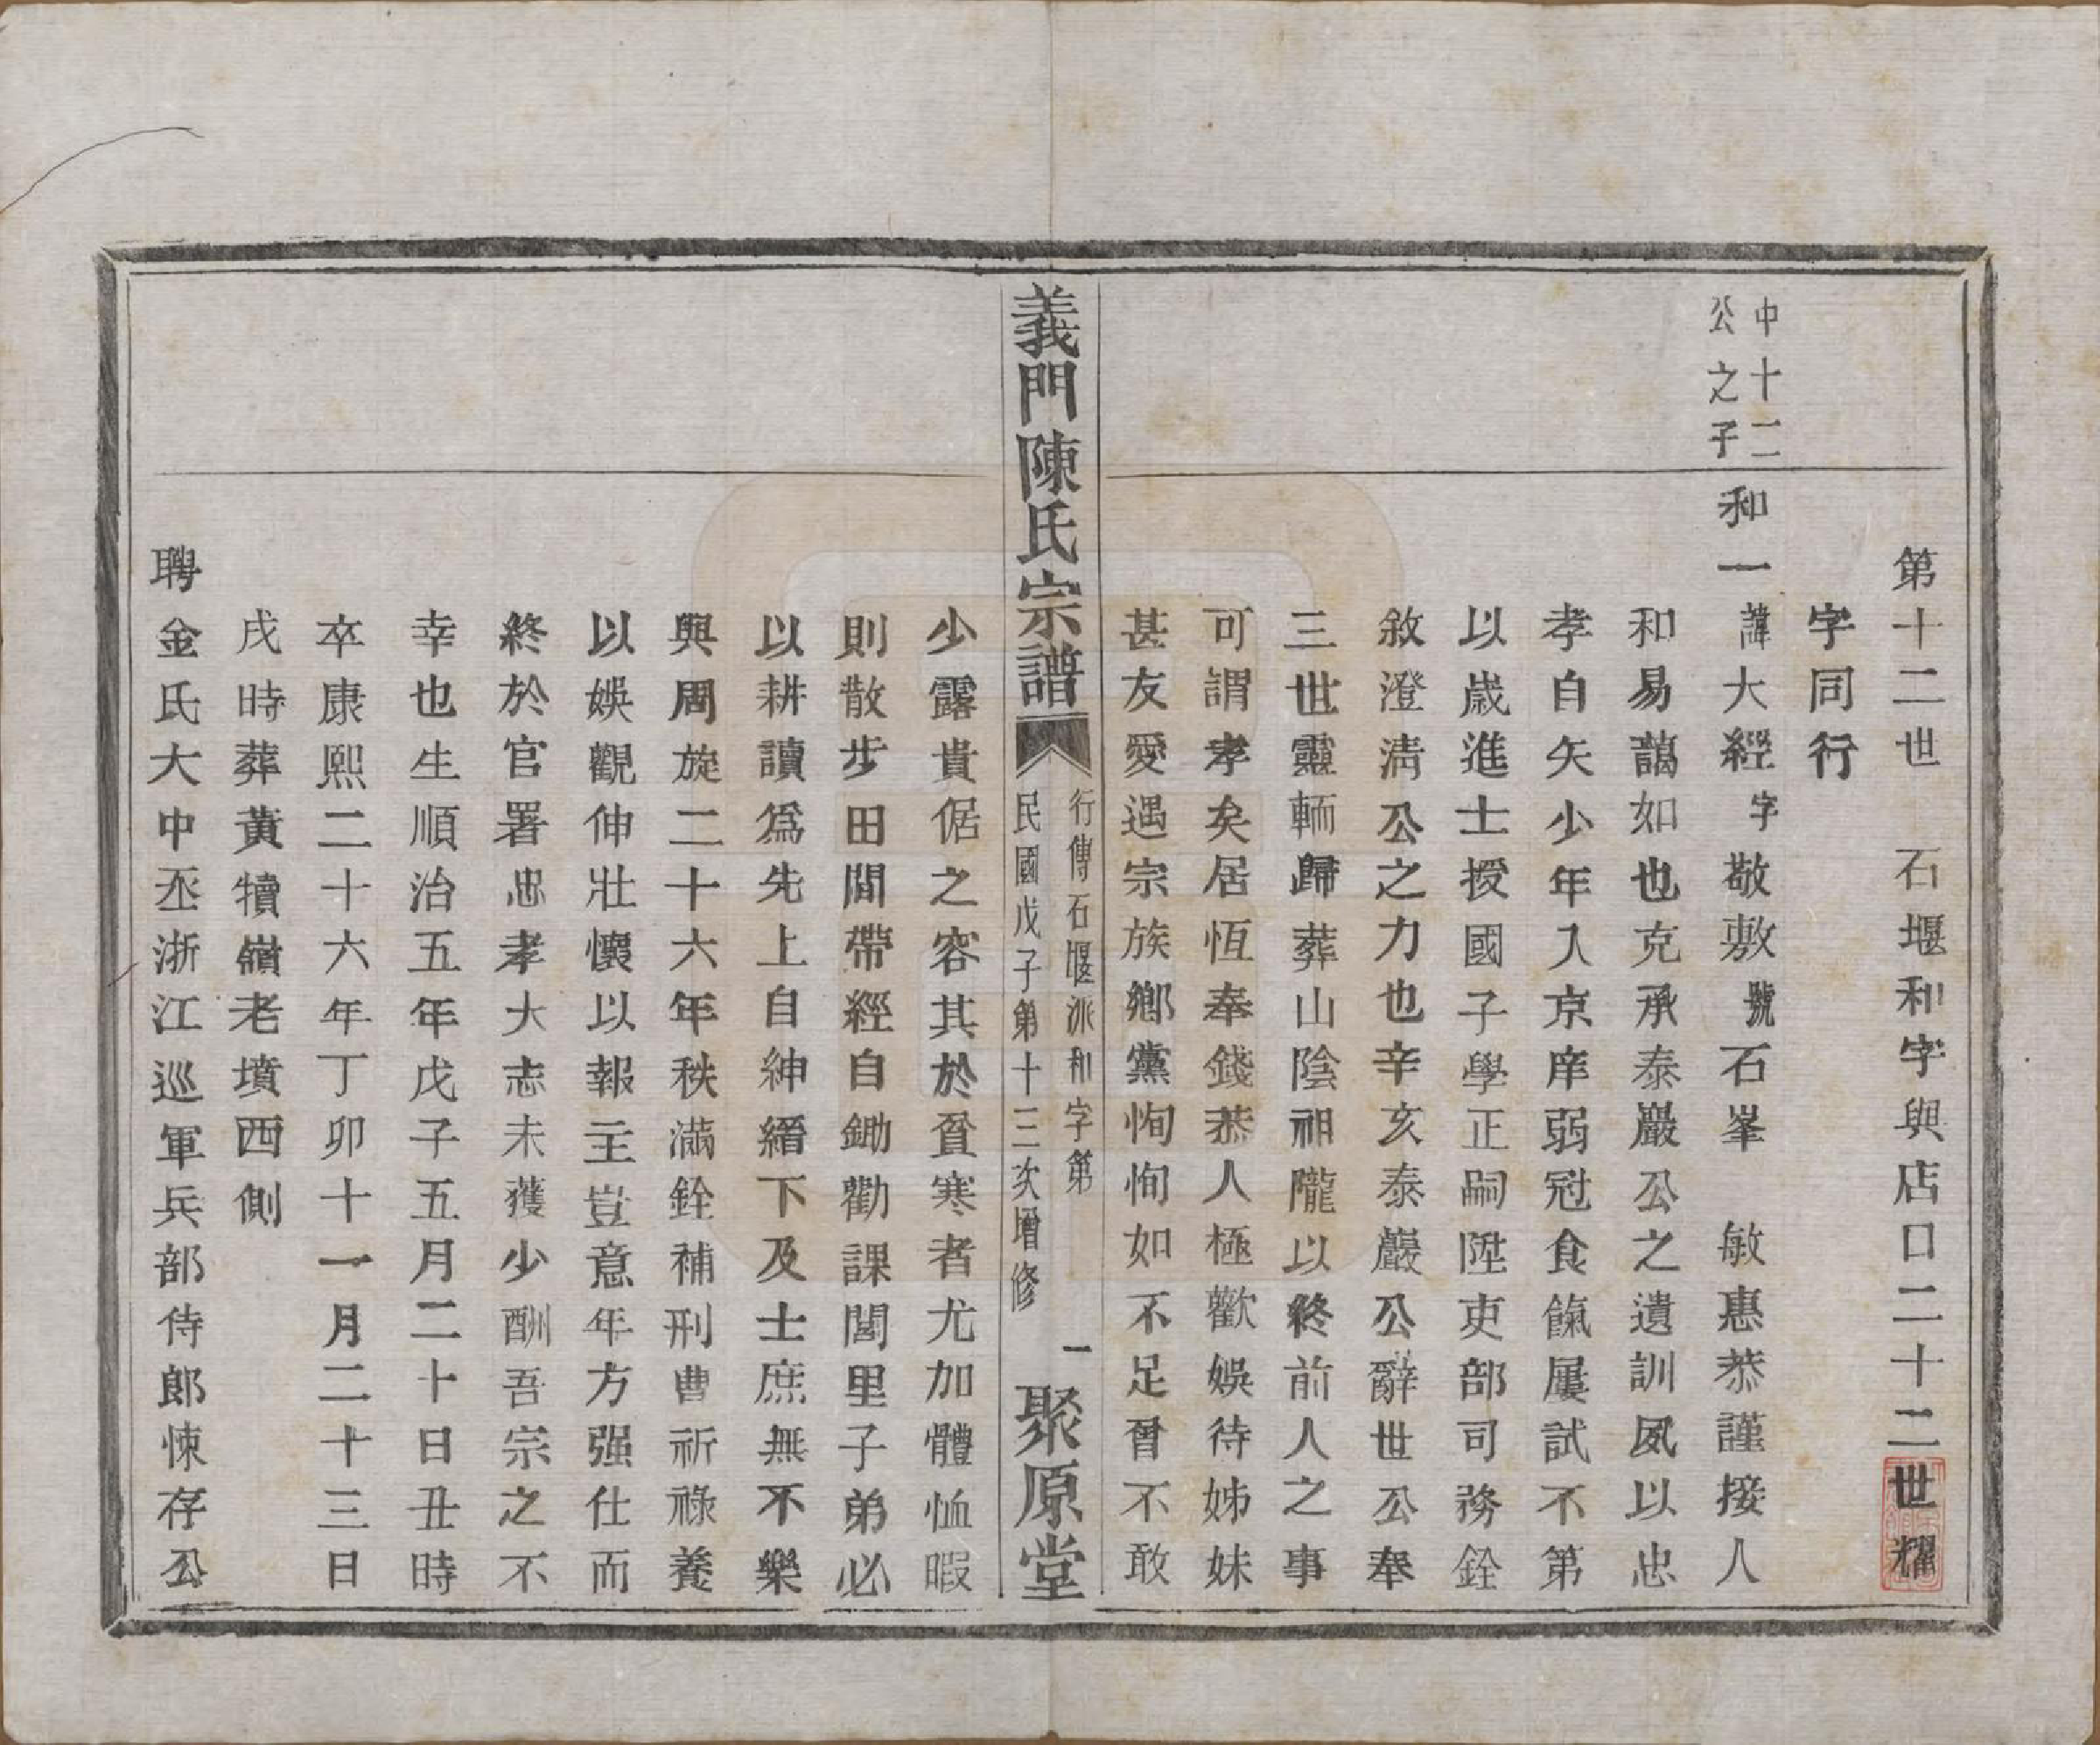 第十二世　石堰和字與店口二十二世耀
字同行
中十二
公之子
和一諱大經字敬敷號石峯　敏惠恭謹接人
和易藹如也克承泰巖公之遺訓夙以忠
孝自矢少年入京庠弱冠食餼屢試不第
以歲進士授國子學正嗣陞吏部司務銓
敘澄清公之力也辛亥泰巖公辭世公奉
三世靈輀歸葬山陰祖隴以終前人之事
可謂孝矣居恆奉錢恭人極歡娛待姊妹
甚友愛遇宗族鄉黨恂恂如不足曾不敢
義門陳氏宗譜
行傳石堰派和字第　一
民國戊子第十三次增修
聚原堂
少露貴倨之容其於貧寒者尤加體恤暇
則散步田間帶經自鋤勸課閭里子弟必
以耕讀爲先上自紳縉下及士庶無不樂
與周旋二十六年秩滿銓補刑曹祈祿養
以娛觀伸壯懷以報主豈意年方强仕而
終於官署忠孝大志未獲少酬吾宗之不
幸也生順治五年戊子五月二十日丑時
卒康熙二十六年丁卯十一月二十三日
戌時葬黃犢嶺老墳西側
聘金氏大中丞浙江巡軍兵部侍郎悚存公